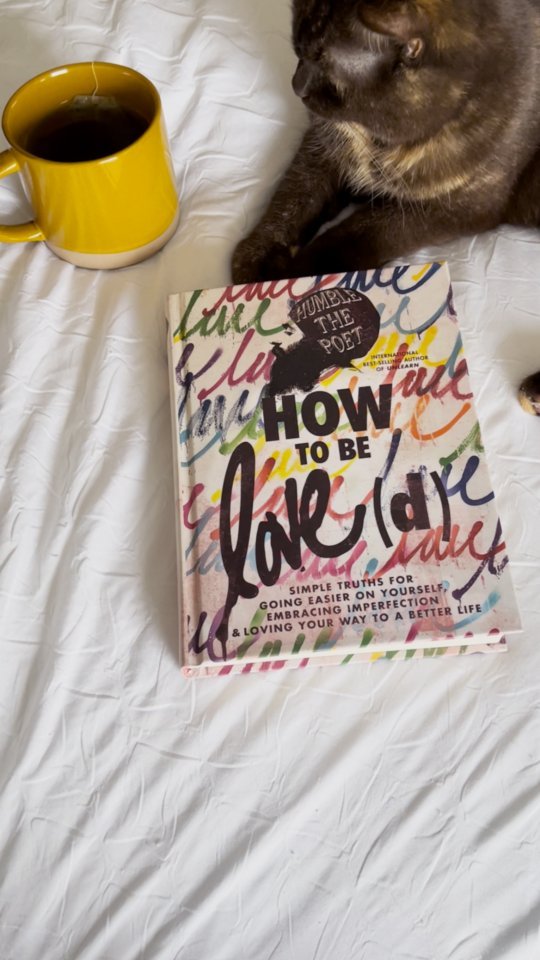 HUMBLE
THE
POET
INTERNATIONAL
BEST-SELLING AUTHOR
OF UNLEARN
HOW
TO BE
love (d)
SIMPLE TRUTHS FOR
GOING EASIER ON YOURSELF,
EMBRACING IMPERFECTION
& LOVING YOUR WAY TO A BETTER LIFE